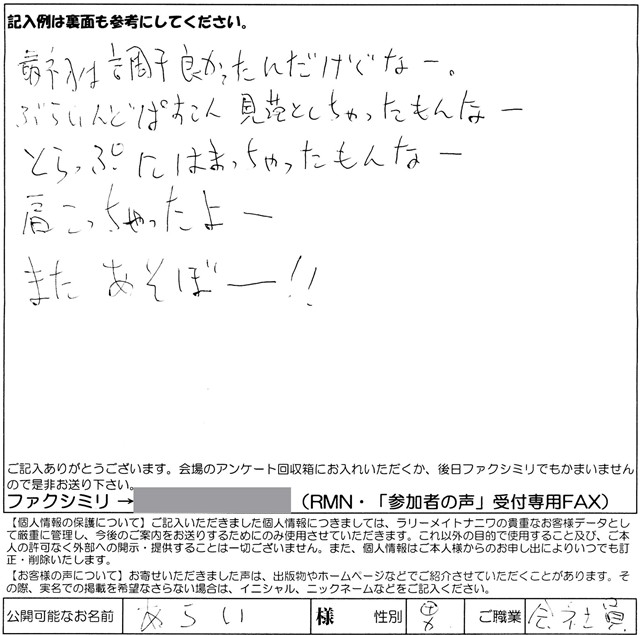 記入例は裏面も参考にしてください。
最初は調子良かったんだけどなー。
ぶらいんどぱすこん 見落としちゃったもんなー
とらっぷにはまっちゃったもんなー
肩こっちゃったよー
またあそぼー!!
ご記入ありがとうございます。会場のアンケート回収箱にお入れいただくか、後日ファクシミリでもかまいません
ので是非お送り下さい。
ファクシミリ → (RMN・「参加者の声」受付専用FAX)
【個人情報の保護について】ご記入いただきました個人情報につきましては、ラリーメイトナニワの貴重なお客様データとし
て厳重に管理し、今後のご案内をお送りするためにのみ使用させていただきます。これ以外の目的で使用すること及び、ご本
人の許可なく外部への開示・提供することは一切ございません。また、個人情報はご本人様からのお申し出によりいつでも訂
正・削除いたします。
【お客様の声について】お寄せいただきました声は、出版物やホームページなどでご紹介させていただくことがあります。そ
の際、実名での掲載を希望なさらない場合は、イニシャル、ニックネームなどをご記入ください。
公開可能なお名前 あらい 様 性別 男 ご職業 会社員